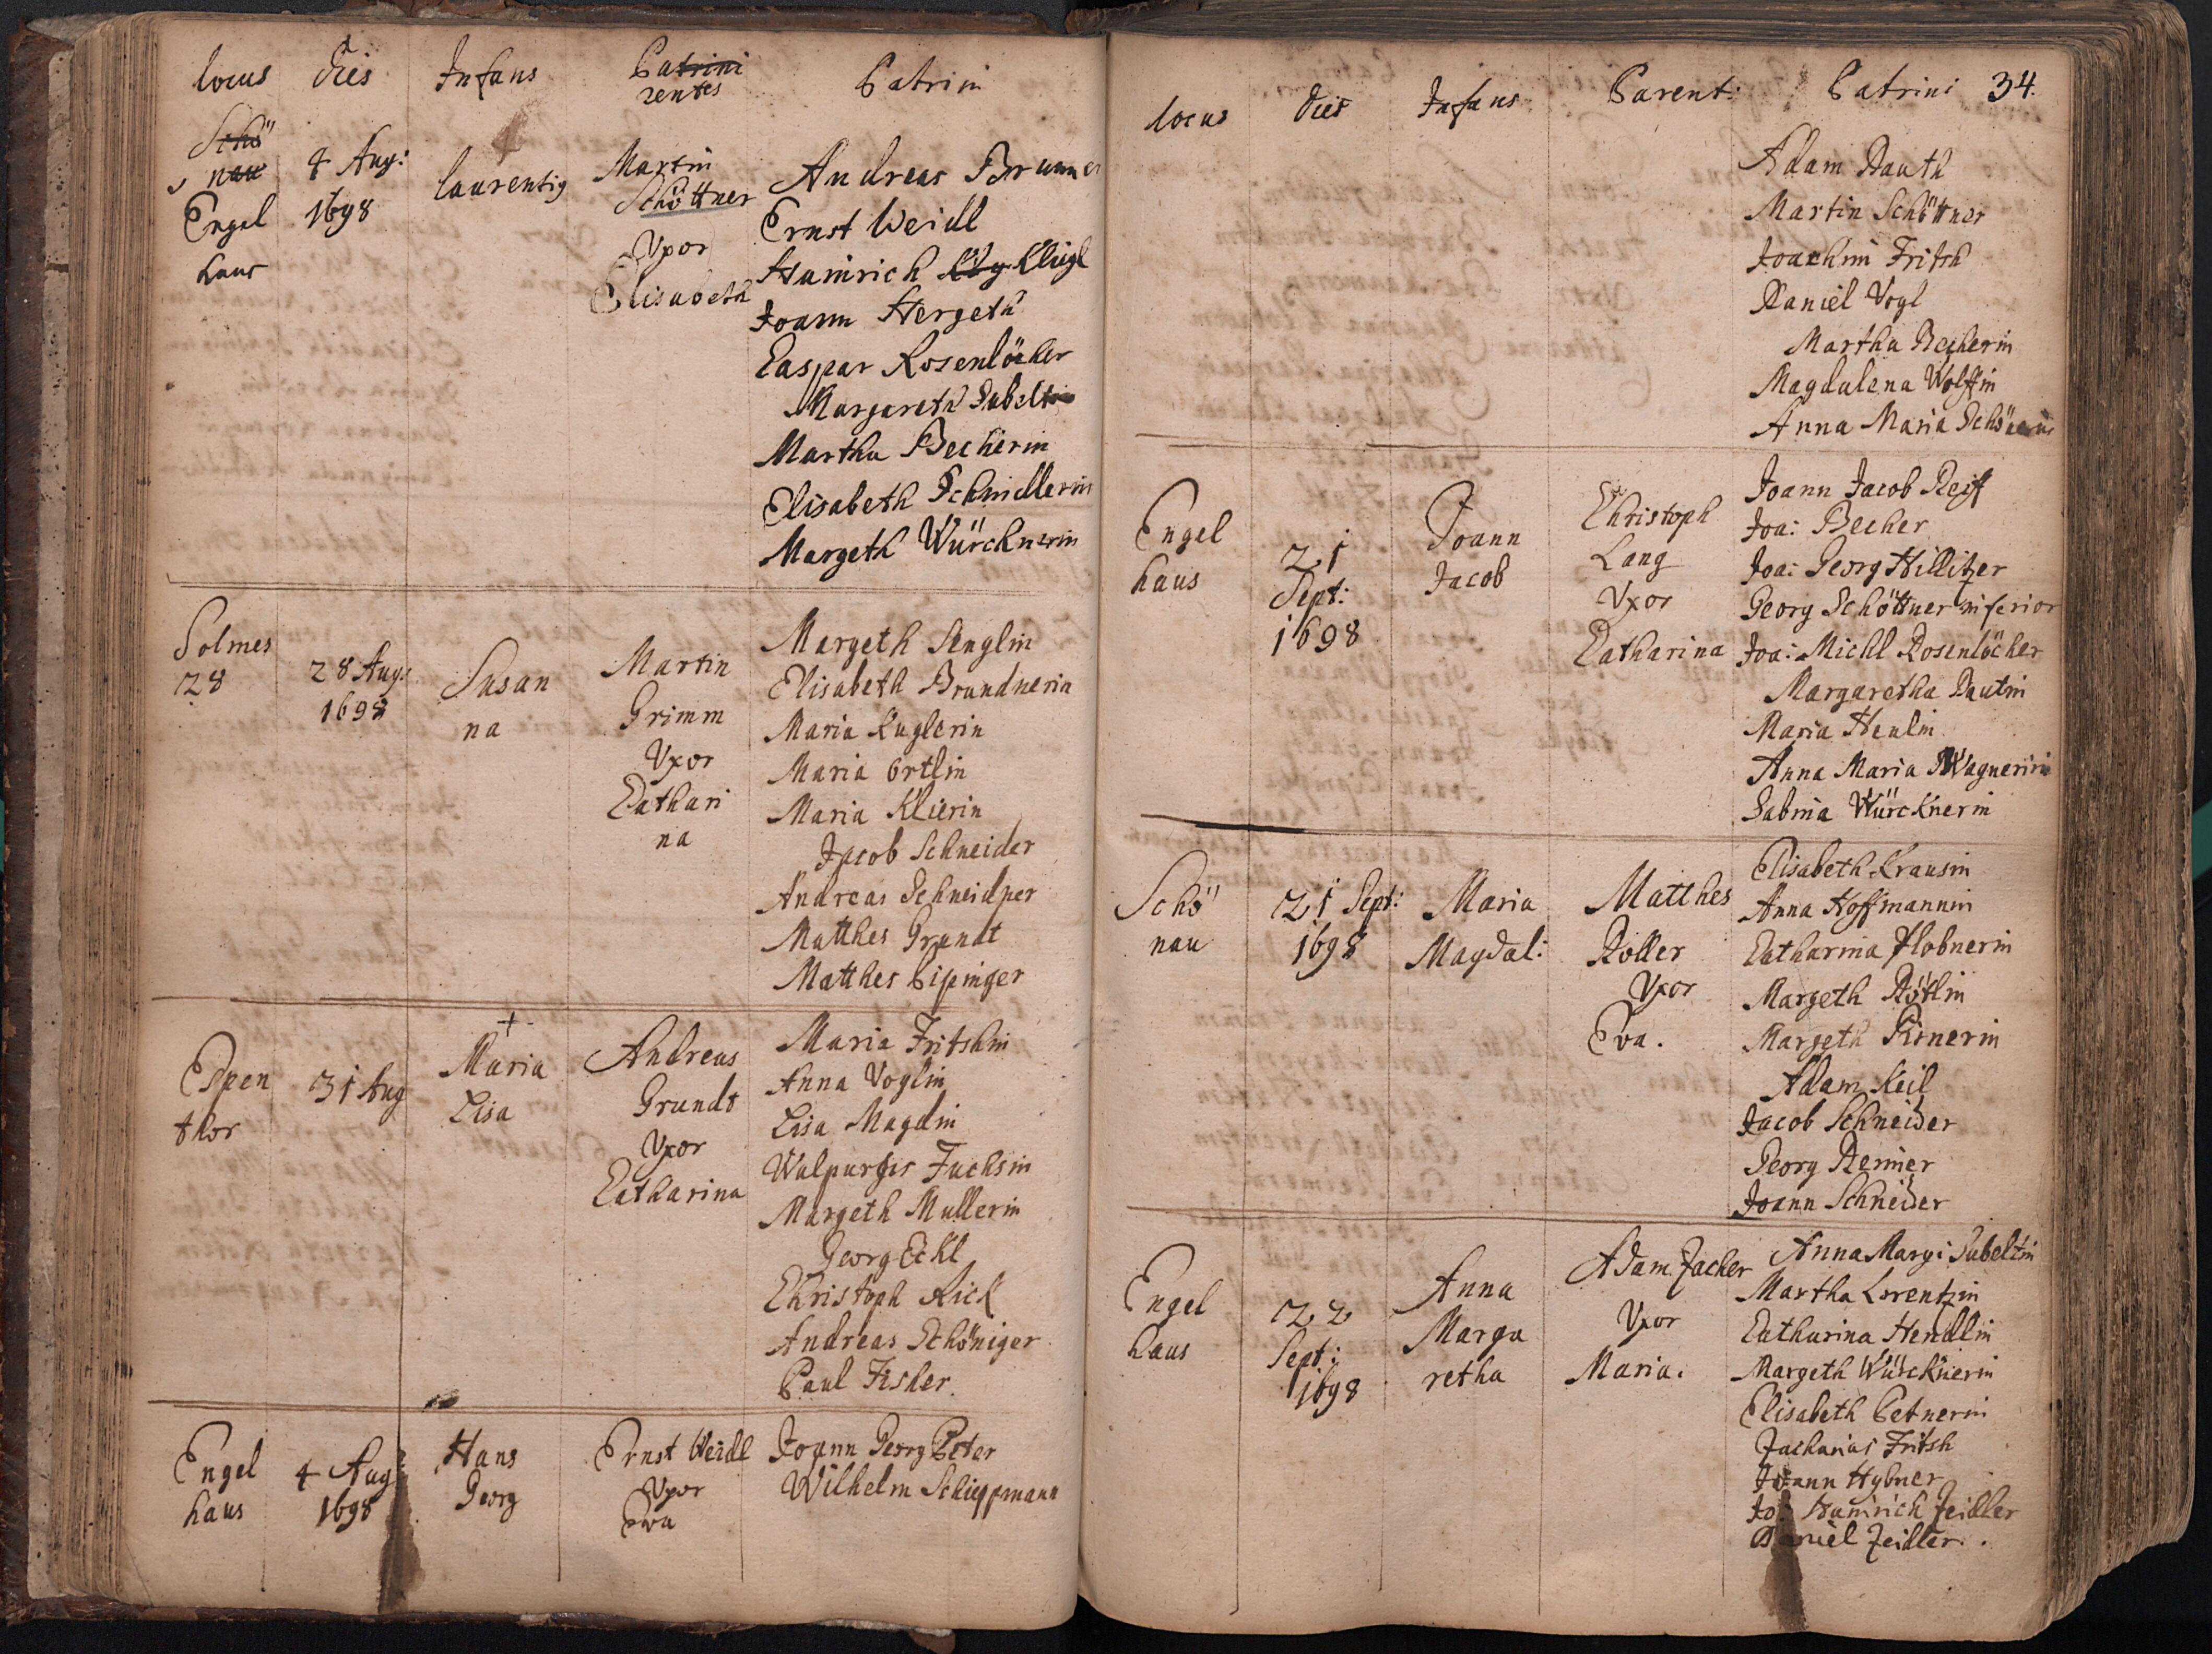 locus dies Infans Patrini Patrini
rentes
Schö
nau
Engel
haus
4 Aug:
1698
laurentig
Martin
Schöttner
Vxor
Elisabeth
Andreas Brunner
Ernst Weidl
Hainrich Klügl
Joann Hergeth
Caspar Rosenlöcher
Margareth Sabeltin
Martha Becherin
Elisabeth Schmidlerin
Margeth Würcknerin
Solmes
28
28 Aug:
1698
Susan
na
Martin
Grimm
Vxor
Cathari
na
Margeth Senglin
Elisabeth Brundnerin
Maria Kuglerin
Maria Ortlin
Maria Klierin
Jacob Schneider
Andreas
Matthes Grundt
Matthes
Espen
thor
31 Aug
+
Maria
Lisa
Andreas
Grundt
Vxor
Catharina
Maria Fritshin
Anna Voglin
Lisa Magdin
Walpurgis Fuchsin
Margeth Mullerin
Georg Eckl
Christoph Rick
Andreas Schöniger
Paul Fisher
Engel
haus
4 Aug:
1698
Hans
Georg
Ernst Weidl
Vxor
Eva
Joann Georg Peter
Wilhelm Schieppmann
locus dies Infans Parent: Patrini 34.
Adam Rauth
Martin Schöttner
Joachim Fritsh
Daniel Vogl
Martha Becherin
Magdalena Wolffin
Anna Maria
Engel
haus
21
Sept:
1698
Joann
Jacob
Christoph
Lang
Vxor
Catharina
Joann Jacob Reiff
Joa: Becher
Joa: Georg Hillitzer
Georg Schöttner inferior
Joa: Michl Rosenlöcher
Margaretha Rautin
Maria Heulin
Anna Maria Wagnerin
Sabina Würcknerin
Schö
nau
21 Sept:
1698
Maria
Magdal:
Matthes
Roller
Vxor
Eva.
Elisabeth Krausin
Anna Hoffmannin
Catharina Hobnerin
Margeth Rötlin
Margeth Pirnerin
Adam Keil
Jacob Schneider
Georg Renner
Joann Schneider
Engel
haus
22
Sept:
1698
Anna
Marga
retha
Adam Zacher
Vxor
Maria.
Anna Marg: Sabeltin
Martha Lorentzin
Catharina Hendlin
Margeth Würcknerin
Elisabeth Petnerin
Zacharias Fritsh
Joann Hybner
Jo: Hainrich Zeidler
Daniel Zeidler.